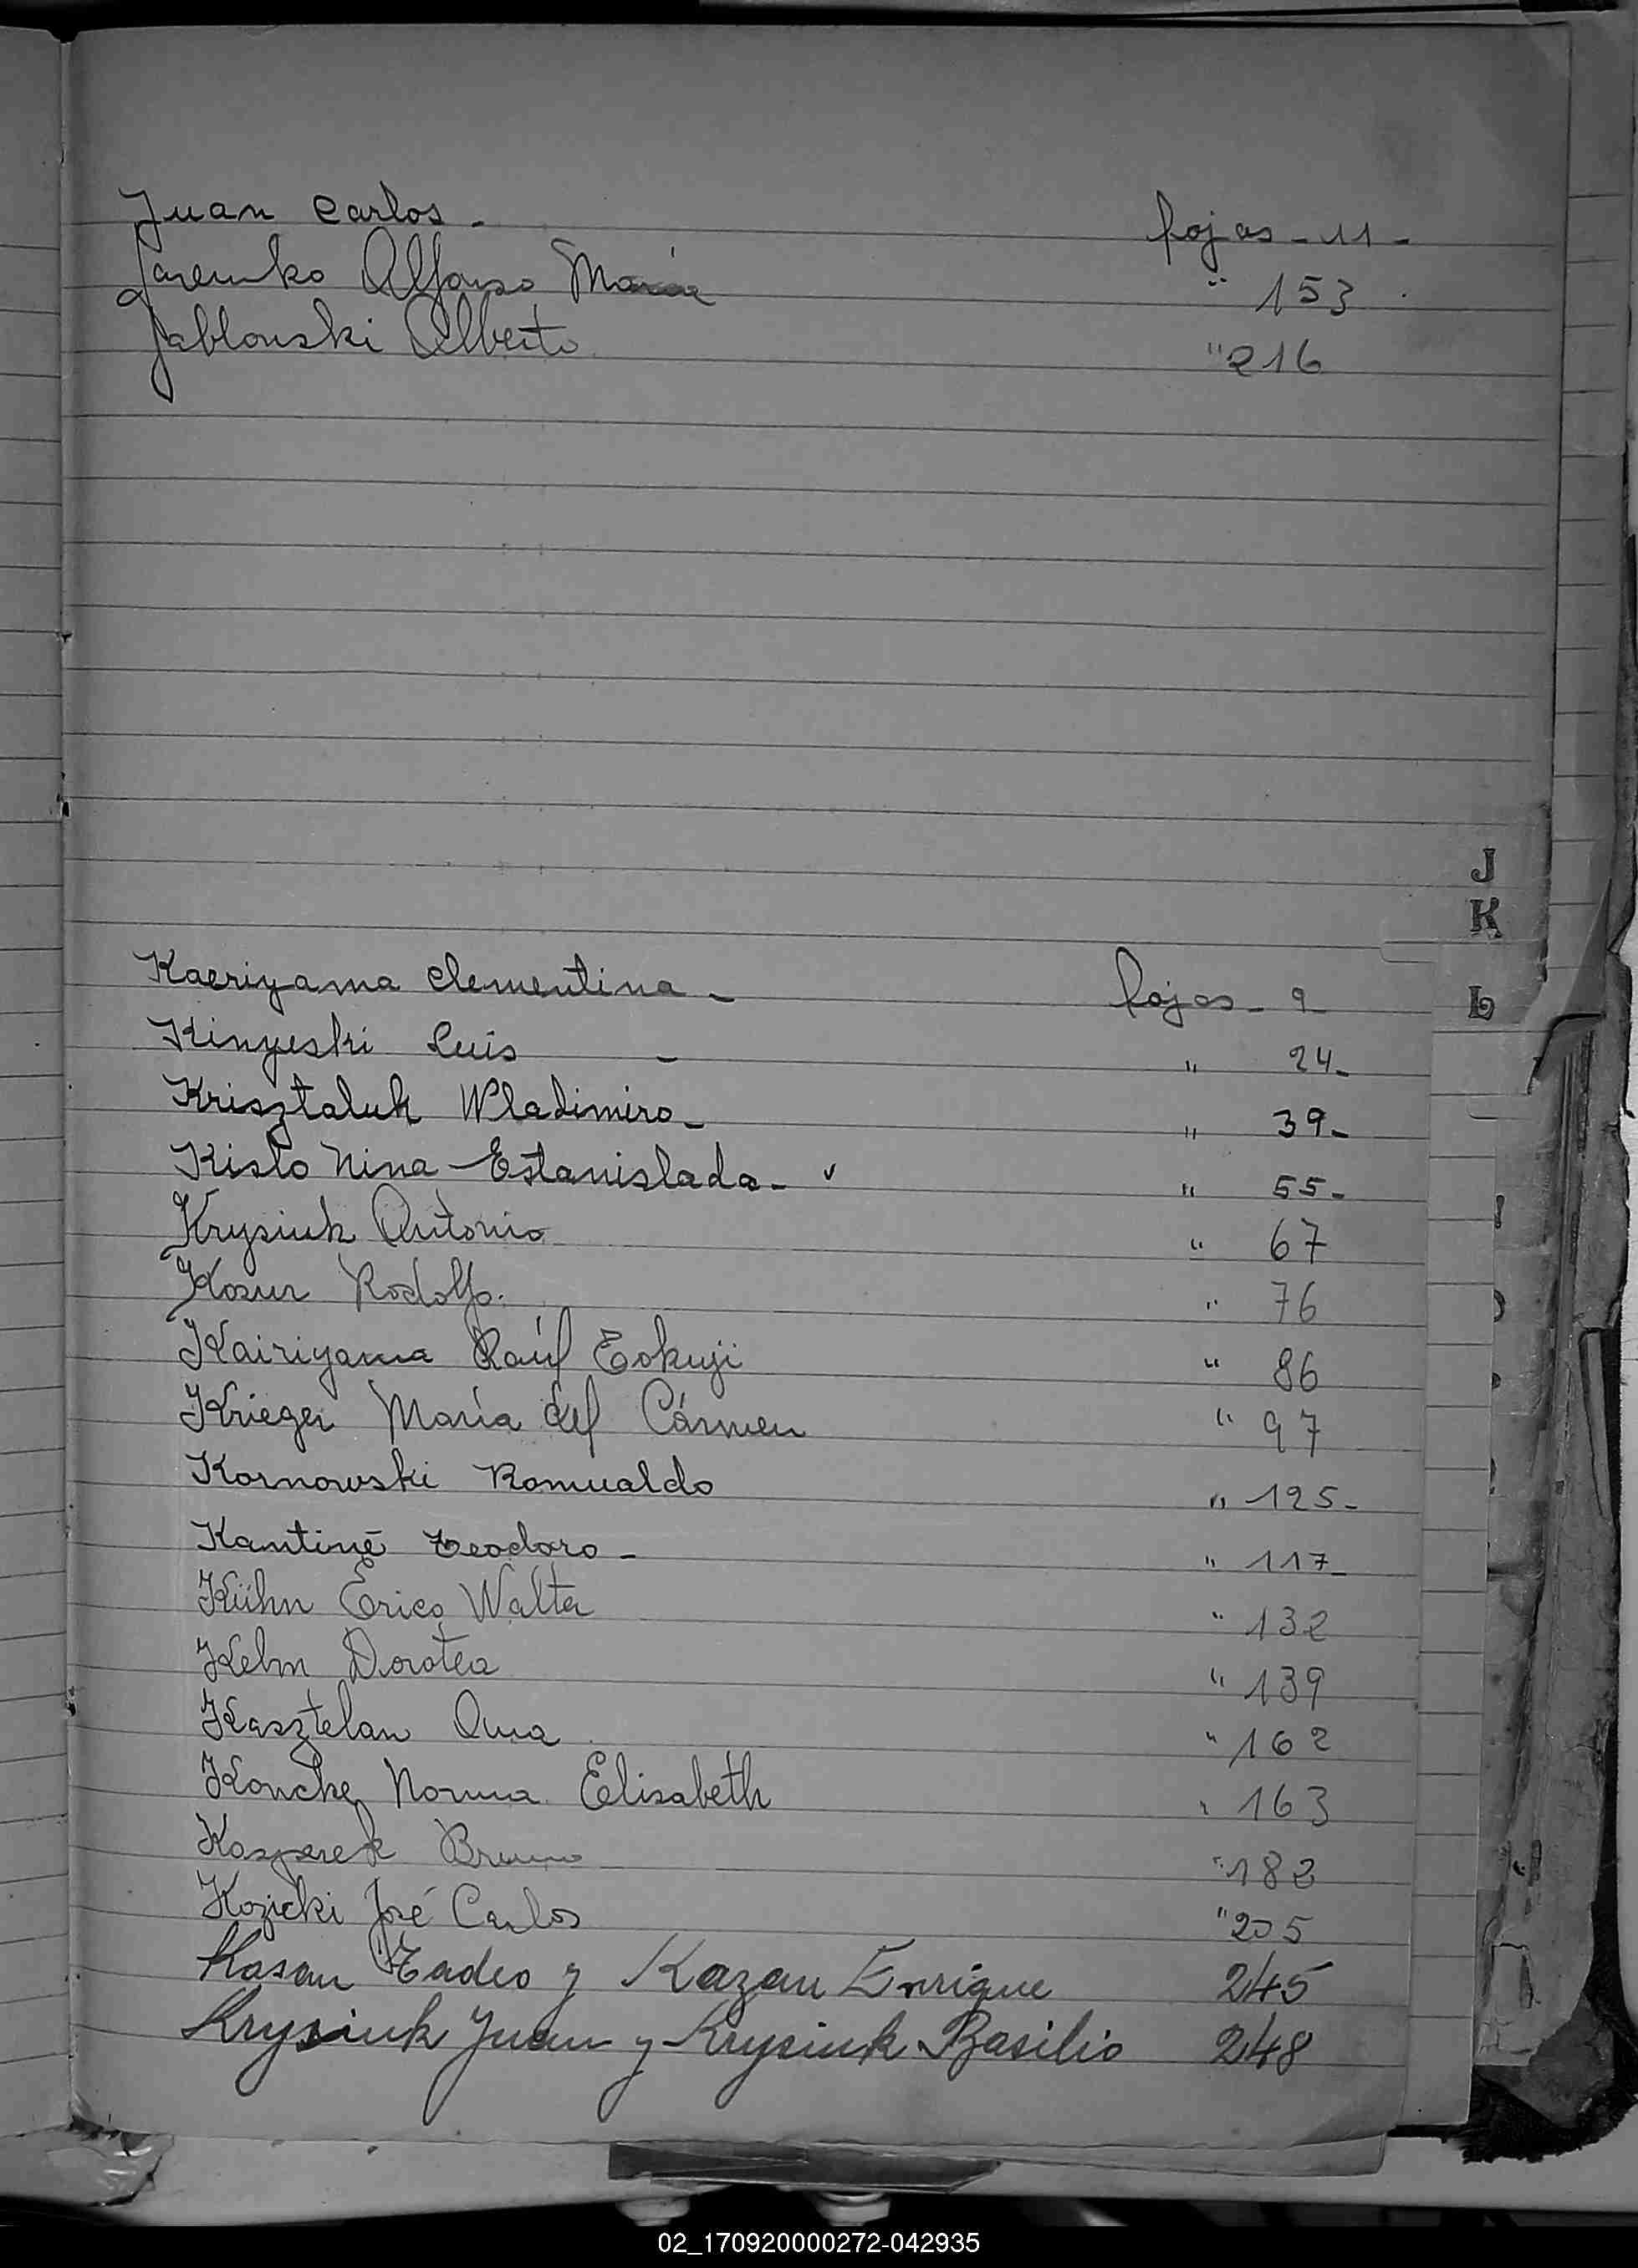 Juan Carlos - fojas - 11 -
Jaremko Alfonso María " 153
Jablonski Alberto " 216
J
K
L
Kaeriyama Clementina - fojas - 9 -
Kinyeski Luis - " 24 -
Krisztaluk Wladimiro - " 39 -
Kisto Nina Estanislada - " 55 -
Krysiuk Antonio " 67
Kosur Rodolfo. " 76
Kairiyama Raúl Eokuji " 86
Krieger María del Cármen " 97
Kornowski Romualdo " 125 -
Kantiné Teodoro - " 117 -
Kühn Erico Walter " 132
Kelm Dorotea " 139
Kasztelan Ana " 162
Koncke Norma Elisabeth " 163
Kasperek Bruno " 182
Kozicki José Carlos " 205
Kasan Tadeo y Kazan Enrique 245
Krysiuk Juan y Krysiuk Basilio 248
02_170920000272-042935